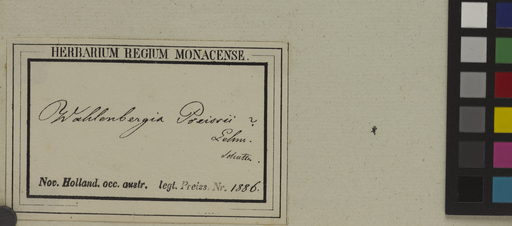 HERBARIUM REGIUM MONACENSE.
Wahlenbergia Preissii ?
Lehm.
Nov. Holland. occ. austr. legt. Preiss. Nr. 1886.